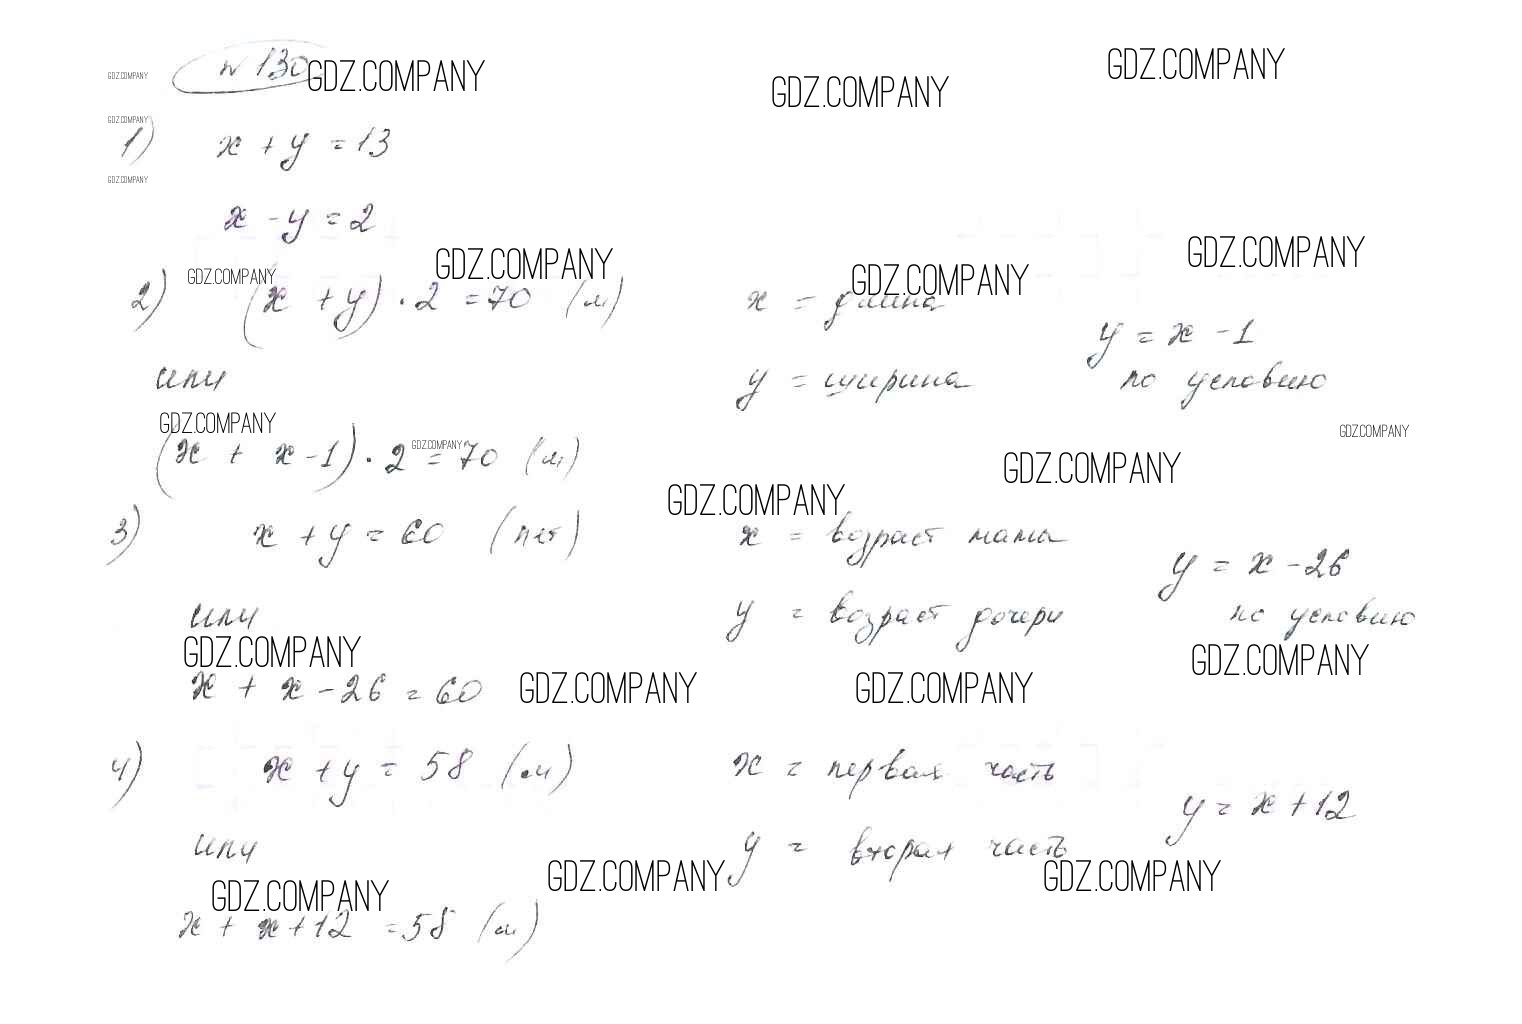 GDZ.COMPANY № 130 GDZ.COMPANY GDZ.COMPANY GDZ.COMPANY
GDZ.COMPANY
1) x + y = 13
GDZ.COMPANY
x - y = 2
GDZ.COMPANY GDZ.COMPANY GDZ.COMPANY GDZ.COMPANY
2) (x + y) · 2 = 70 (м) x = длина
y = x - 1
или y = ширина по условию
GDZ.COMPANY GDZ.COMPANY GDZ.COMPANY
(x + x - 1) · 2 = 70 (м) GDZ.COMPANY
GDZ.COMPANY
3) x + y = 60 (лет) x = возраст мамы
y = x - 26
или y = возраст дочери по условию
GDZ.COMPANY GDZ.COMPANY
x + x - 26 = 60 GDZ.COMPANY GDZ.COMPANY
4) x + y = 58 (м) x = первая часть
y = x + 12
или y = вторая часть
GDZ.COMPANY GDZ.COMPANY GDZ.COMPANY
x + x + 12 = 58 (м)